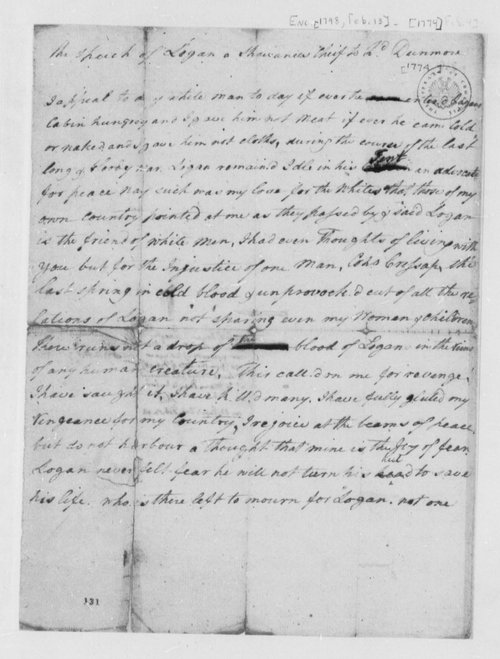 Enc. [1798, Feb. 13]. [1774]
[1774
the Speech of Logan a Shawanes Chief to Ld Dunmore
I appeal to any white man to day if ever he entered Logans
Cabin hungrey and I gave him not Meat if ever he came Cold
or naked and I gave him not cloths, during the course of the last
long & War. Logan remain'd Idle in his Tent an advocate
for peace Nay such was my love for the Whites that those of my
own Country pointed at me as they passed by & said Logan
is the friend of white men, I had even Thoughts of living with
You but for the Injustice of one man, Cressap, the
last spring in cold blood & unprovock'd cut of all the re
lations of Logan not Sparing even my Women & Children
There runs not a drop of blood of Logan in the veins
of any human creature. This call'd on me for revenge
I have saught it, I have kill'd many, I have fully gluted my
Vengeance for my Country, I rejoice at the beams of peace
but do not harbour a thought that mine is the Joy of fear
Logan never felt fear he will not turn his heel to save
his life. Who is there left to mourn for Logan. not one
131